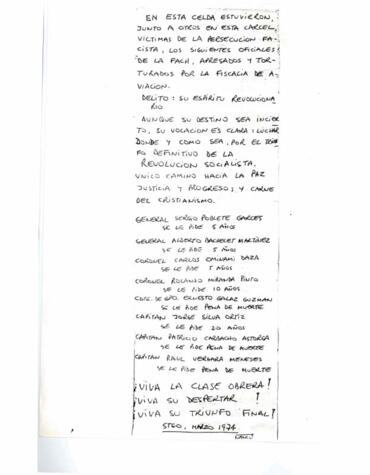 EN ESTA CELDA ESTUVIERON,
JUNTO A OTROS EN ESTA CARCEL,
VICTIMAS DE LA PERSECUCION FA-
CISTA, LOS SIGUIENTES OFICIALES
DE LA FACH, APRESADOS Y TOR-
TURADOS POR LA FISCALIA DE A-
VIACION.
DELITO: SU ESPÍRITU REVOLUCIONA
RIO
AUNQUE SU DESTINO SEA INCIER
TO, SU VOCACION ES CLARA: LUCHAR
DONDE Y COMO SEA, POR EL TRIUN
FO DEFINITIVO DE LA
REVOLUCION SOCIALISTA.
UNICO CAMINO HACIA LA PAZ
JUSTICIA Y PROGRESO; Y CARNE
DEL CRISTIANISMO.
GENERAL SERGIO POBLETE GARCES
SE LE PIDE 5 AÑOS
GENERAL ALBERTO BACHELET MARTÍNEZ
SE LE PIDE 5 AÑOS
CORONEL CARLOS OMINAMI DAZA
SE LE PIDE 5 AÑOS
CORONEL ROLANDO MIRANDA PINTO
SE LE PIDE 10 AÑOS
CDTE. DE GPO. ERNESTO GALAZ GUZMAN
SE LE PIDE PENA DE MUERTE
CAPITAN JORGE SILVA ORTIZ
SE LE PIDE 20 AÑOS
CAPITAN PATRICIO CARBACHO ASTORGA
SE LE PIDE PENA DE MUERTE
CAPITAN RAUL VERGARA MENESES
SE LE PIDE PENA DE MUERTE
¡VIVA LA CLASE OBRERA!
¡VIVA SU DESPERTAR!
¡VIVA SU TRIUNFO FINAL!
STGO, MARZO 1974